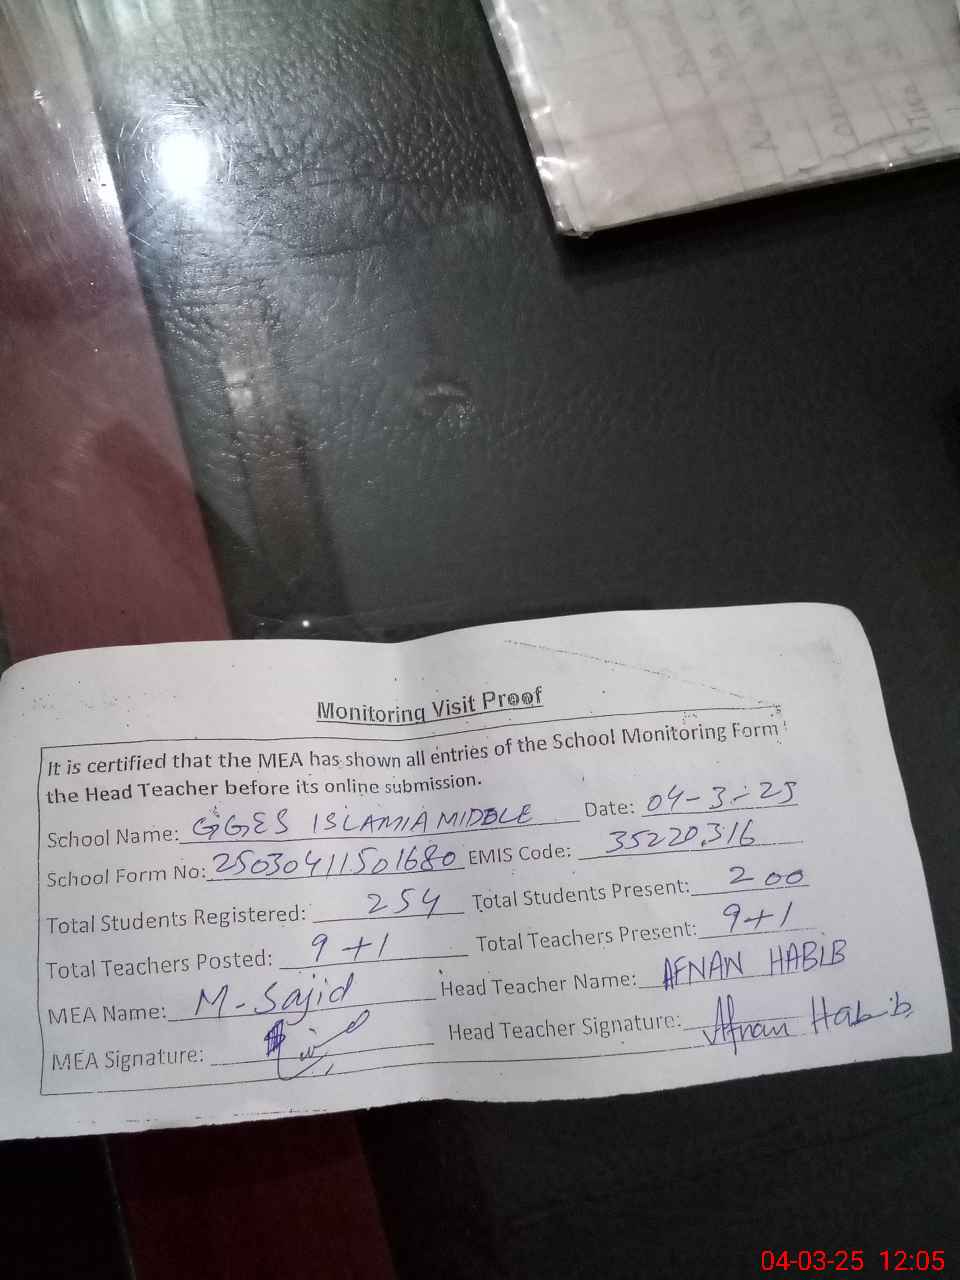 Monitoring Visit Proof
It is certified that the MEA has shown all entries of the School Monitoring Form
the Head Teacher before its online submission.
School Name: GGES ISLAMIA MIDDLE Date: 04-3-25
School Form No: 25030411501680 EMIS Code: 35220316
Total Students Registered: 254 Total Students Present: 200
Total Teachers Posted: 9+1 Total Teachers Present: 9+1
MEA Name: M-Sajid Head Teacher Name: AFNAN HABIB
MEA Signature: Head Teacher Signature: Afnan Habib
04-03-25 12:05